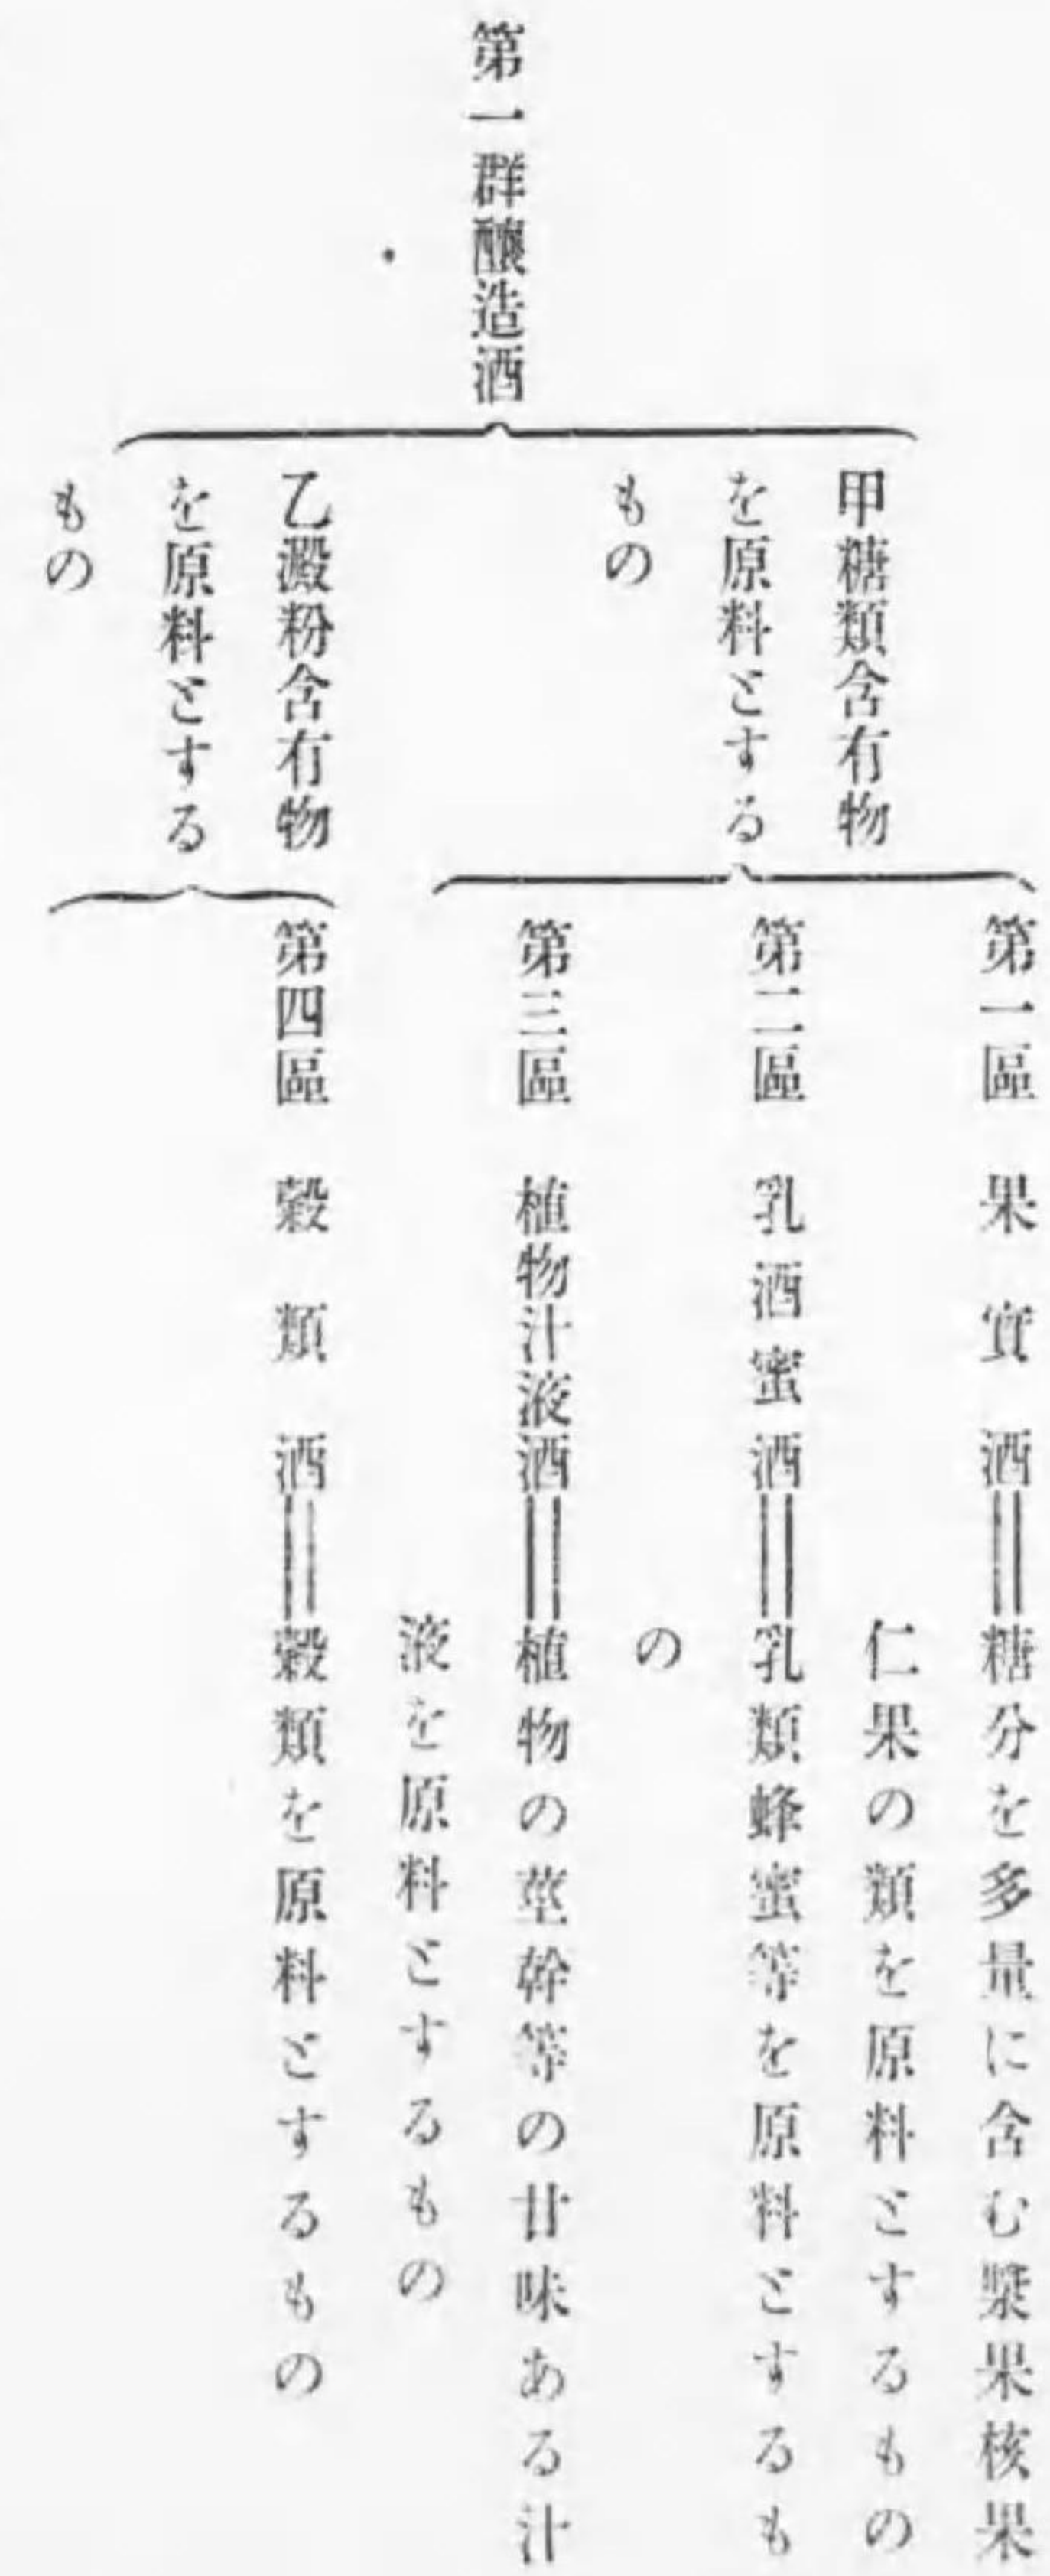 第一群釀造酒
甲糖類含有物
を原料とする
もの
第一區 果實酒＝糖分を多量に含む漿果核果
仁果の類を原料とするもの
第二區 乳酒蜜酒＝乳類蜂蜜等を原料とするも
の
第三區 植物汁液酒＝植物の莖幹等の甘味ある汁
液を原料とするもの
乙澱粉含有物
を原料とする
もの
第四區 穀類酒＝穀類を原料とするもの